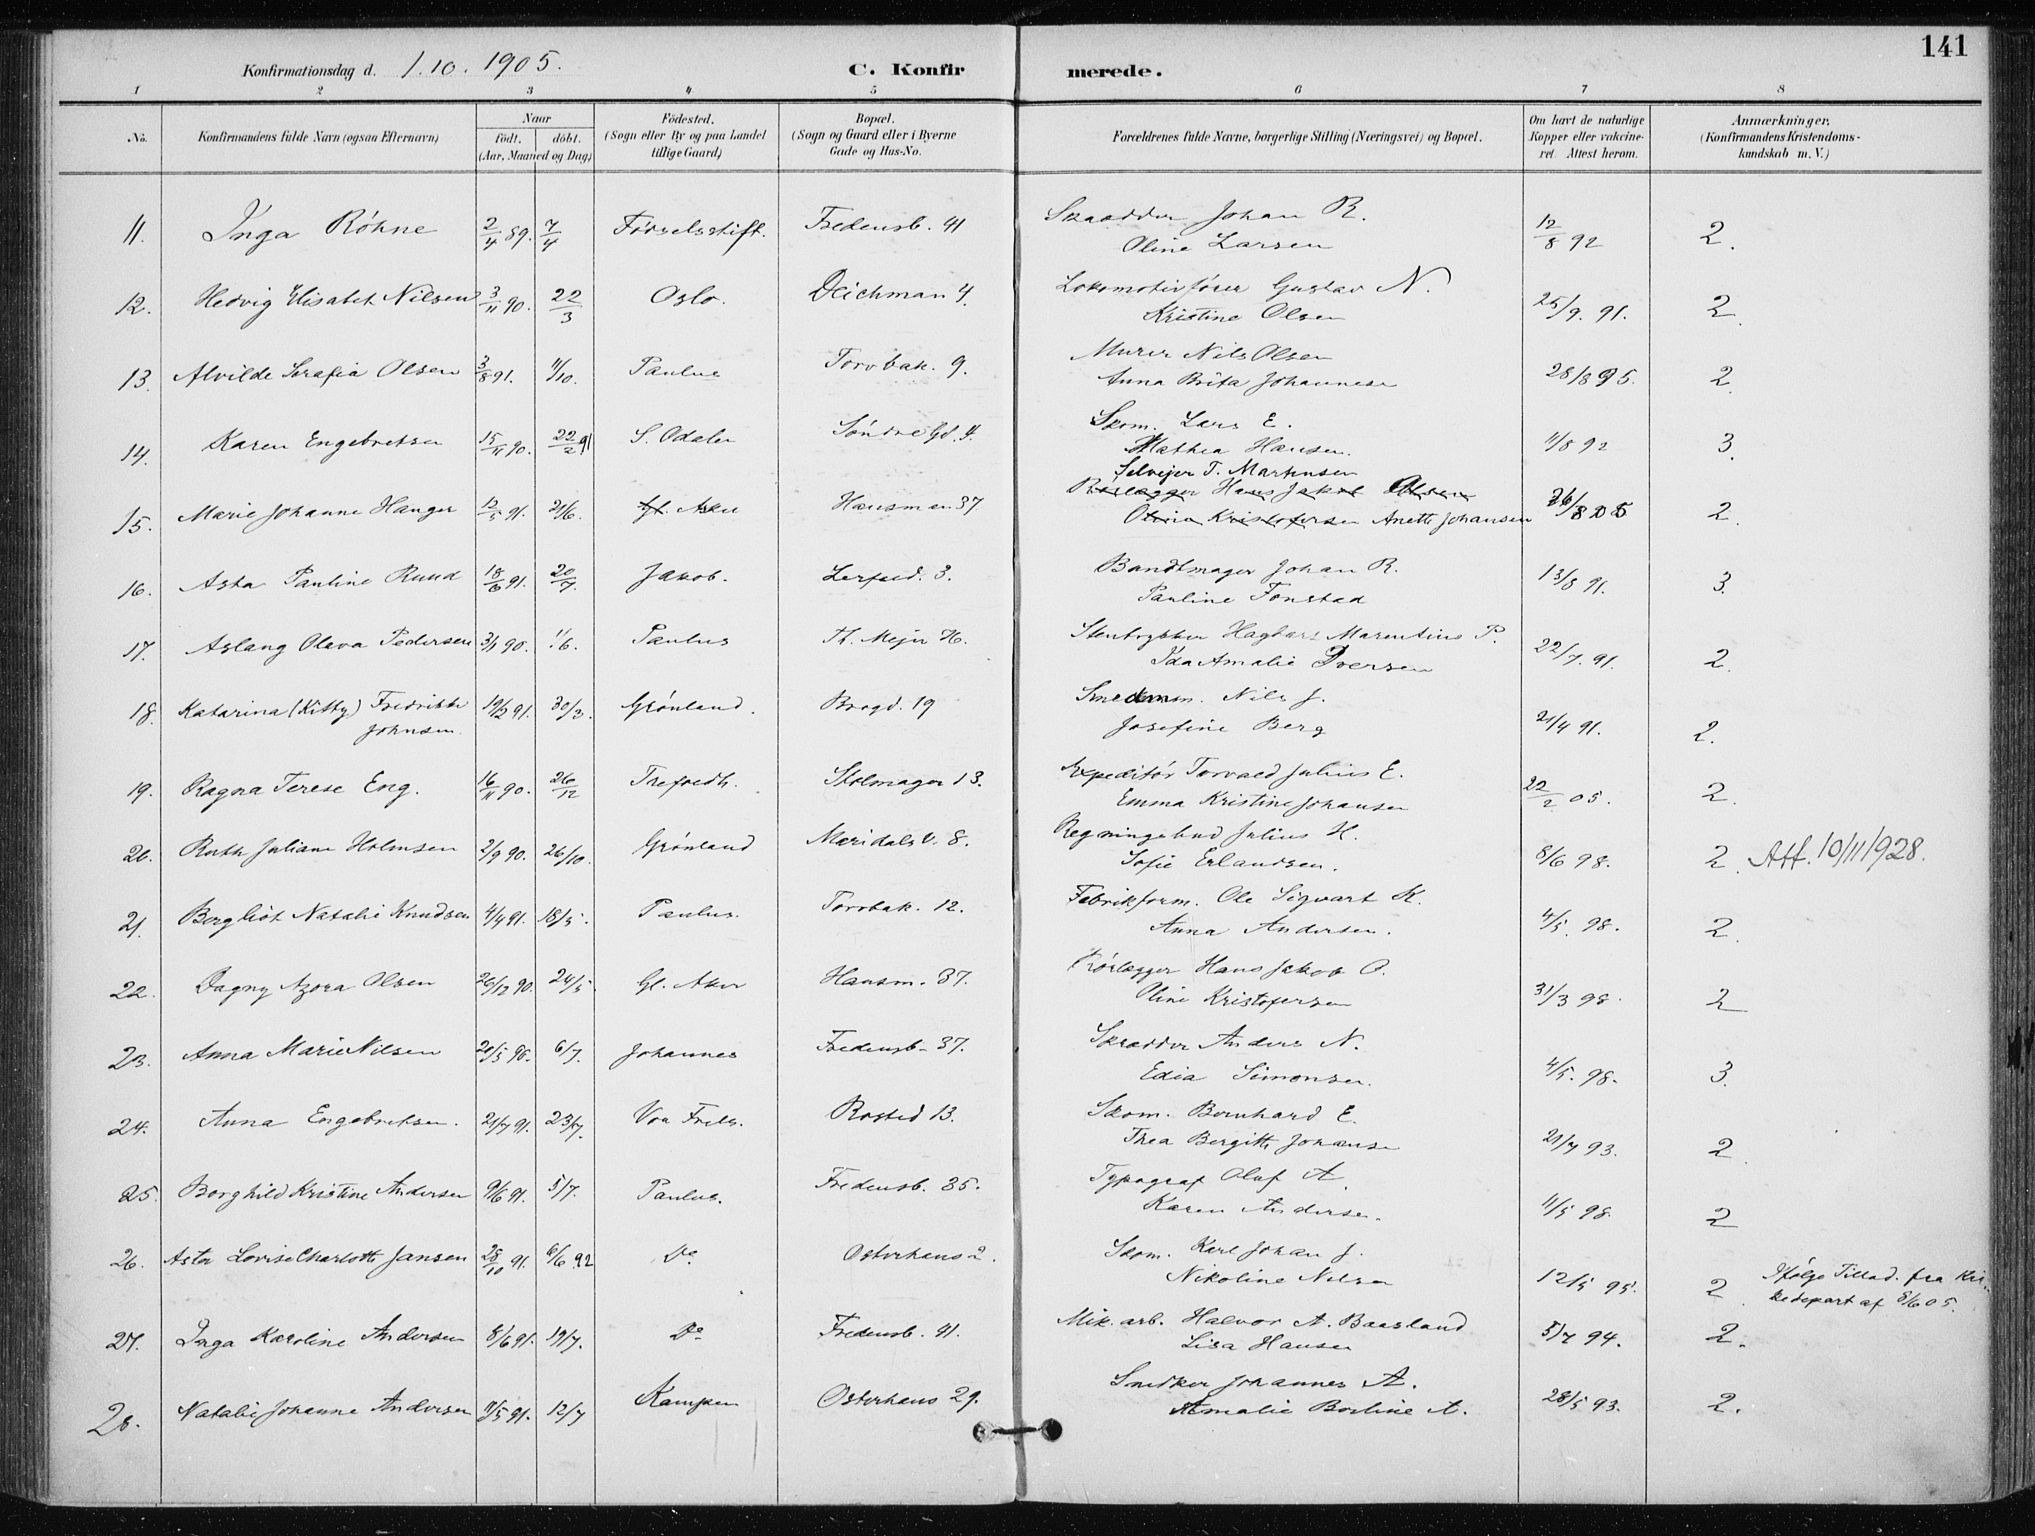 Konfirmationsdag d. 1.10.1905. C. Konfirmerede. 141
1 2 3 4 5 6 7 8
No. Konfirmandens fulde Navn (ogsaa Efternavn) Naar födt. döbt. (Aar, Maaned og Dag) Födested. (Sogn eller By og paa Landet tillige Gaard) Bopæl. (Sogn og Gaard eller i Byerne Gade og Hus-No. Forældrenes fulde Navne, borgerlige Stilling (Næringsvei) og Bopæl. Om havt de naturlige Kopper eller vakcineret. Attest herom. Anmærkninger. (Konfirmandens Kristendomskundskab m. V.)
11. Inga Röhne 2/4 89. 7/4 Fødselsstift. Fredensb. 41 Skrædder Johan R. 12/8 92 2.
Oline Larsen
12. Hedvig Elisabet Nilsen 3/11 90. 22/3 Oslo. Deichman 4. Lokomotivfører Gustav N. 25/9. 91. 2.
Kristine Olsen
13. Alvilde Serafia Olsen 3/8 91. 11/10. Paulus Torvbak. 9. Murer Nils Olsen 28/8 95. 2.
Anna Brita Johannesen
14. Karen Engebretsen 15/11 90. 22/2 91 S. Odalen Søndre Gd. 4. Skom. Lars E. 11/8 92 3.
Mathea Hansen.
Selvejer T. Martinsen
15. Marie Johanne Hanger 12/5 91. 21/6. Gl. Aker Hausman 37 Rørlægger Hans Jakob Olsen 2.
Kristofersen Anette Johansen
16. Asta Pauline Ruud 18/6 91. 20/7. Jakob. Lerfeld. 3. Bandtmager Johan R. 13/8 91. 3.
Pauline Fonstad
17. Aslaug Olava Pedersen 3/1 90. 1/6. Paulus Th. Mejer H. Stenhugger Hagbart Marentius P. 22/7. 91. 2.
Ida Amalie Iversen
18. Katarina (Kitty) Fredrikke 19/2 91. 30/3. Grønland. Brogd. 19 Smedem. Nils J. 21/4 91. 2.
Johnsen. Josefine Berg
19. Ragna Terese Eng. 16/11 90. 26/12 Trefoldh. Stolmager 13. Expeditør Torvald Julius E. 22/2 05. 2.
Emma Kristine Johansen
20. Ruth Juliane Holmsen 2/9 90. 26/10. Grønland Maridals v. 8. Regningsbud Julius H. 8/6 98. 2. Att. 10/11 1928.
Sofie Erlandsen.
21. Bergliot Natalie Knudsen 4/4 91. 18/5. Paulus. Torvbak. 12. Fabrikform. Ole Sigvart K. 4/5. 98. 2.
Anna Andersen.
22. Dagny Azora Olsen 26/12 90. 24/5. Gl. Aker Hausm. 37. Rørlægger Hans Jakob O. 31/3 98. 2
Oline Kristofersen
23. Anna Marie Nilsen 20/5 90. 6/7. Johannes Fredensb. 37. Skrædder Anders N. 4/5. 98. 3.
Edia Simonsen.
24. Anna Engebretsen. 21/4 91. 23/7. Vor Frels. Rosted 13. Skom. Bernhard E. 21/7 93. 2.
Thea Bergitte Johansen
25. Borghild Kristine Andersen 9/6 91. 5/7. Paulus. Fredensb. 35. Typograf Oluf A. 11/5 98. 2
Karen Andersen.
26. Astor Lovise Charlotte Jansen 28/10 91. 6/6 92 Do Osterhaus 2. Skom. Karl Johan J. 12/5 95. 2. Ifølge Tillad. fra Kir-
Nikoline Nilsen kedepart af 8/6 05.
27. Inga Karoline Andersen 8/6 91. 19/7. Do Fredensb. 41. Mek. arb. Halvor A. Baasland 5/7 94. 2.
Lisa Hansen
28. Natalie Johanne Andersen 11/5 91. 12/7 Kampen Osterhaus 29. Snedker Johannes A. 28/5 93. 2.
Amalie Bortine A.